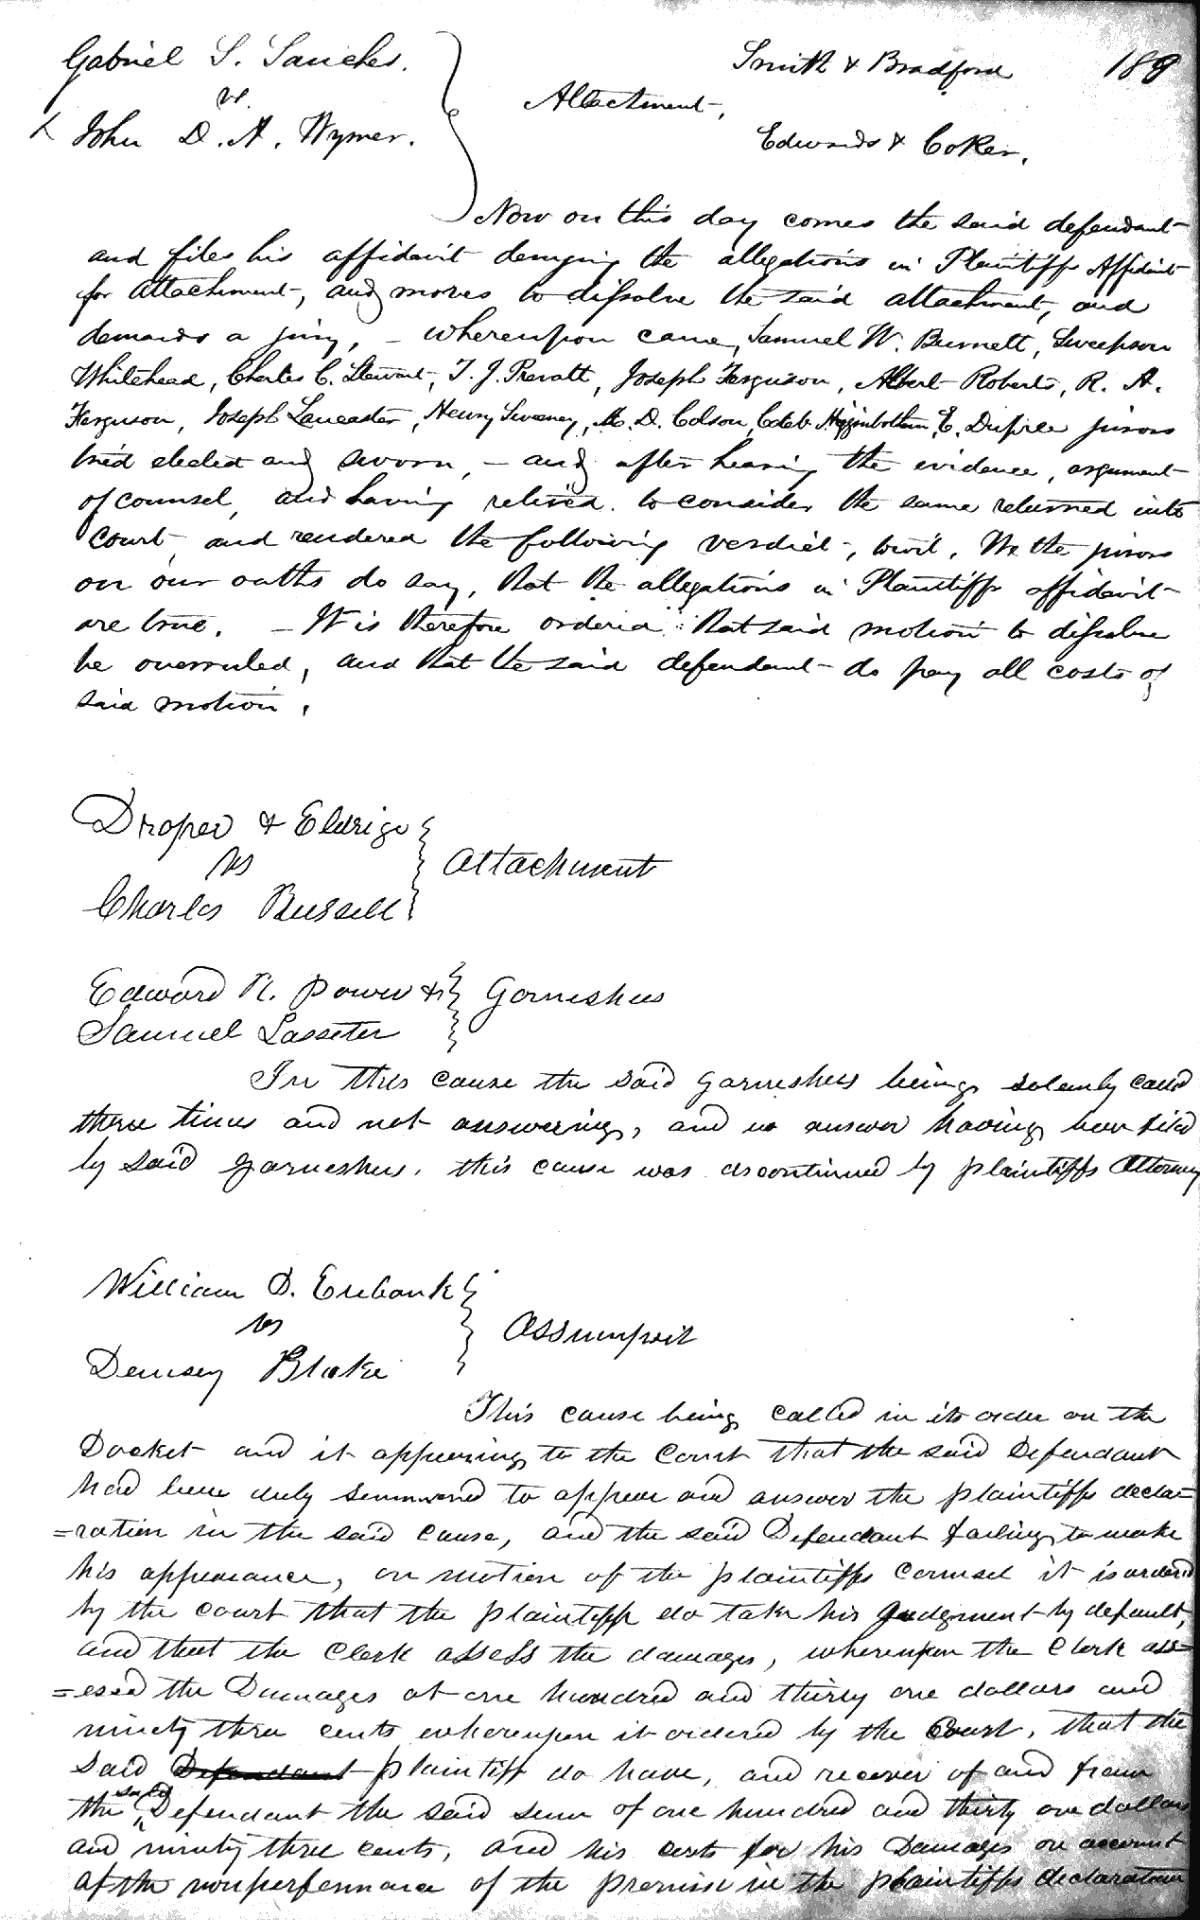 Gabriel S. Sanches.
vs.
John D. A. Wymer.
Attachment,
Smith & Bradford
Edwards & Coker.
189
Now on this day comes the said defendant
and files his affidavit denying the allegations in Plaintiffs Affidavit
for attachment, and moves to dissolve the said attachment, and
demands a jury, - whereupon came, Samuel W. Burnett, Sweepson
Whitehead, Charles C. Stewart, T. J. Prevatt, Joseph Ferguson, Albert Roberts, R. A.
Ferguson, Joseph Lancaster, Henry Sweeney, M. D. Colson, Caleb Higginbotham, E. Dupree jurors
tried elected and sworn, - and after hearing the evidence, argument
of counsel, and having retired to consider the same returned into
court, and rendered the following verdict, towit, We the jurors
on our oaths do say, that the allegations in Plaintiffs affidavit
are true. - It is therefore ordered that said motion to dissolve
be overruled, and that the said defendant do pay all costs of
said motion.
Draper & Eldrige
vs
Charles Russell
Attachment
Edward R. Power &
Samuel Lasseter
Garneshees
In this cause the said garneshees being solemly called
three times and not answering, and no answer having been filed
by said garneshees. this cause was discontinued by plaintiffs Attorney
William D. Eubank
vs
Demsey Blake
Assumpsit
This cause being called in its order on the
Docket and it appearing to the Court that the said Defendant
had been duly summoned to appear and answer the plaintiffs decla=
=ration in the said cause, and the said Defendant failing to make
his appearance, on motion of the plaintiffs Counsel it is ordered
by the court that the plaintiff do take his Judgment by default,
and that the Clerk assess the damages, whereupon the Clerk ass=
=esed the Damages at one hundred and thirty one dollars and
ninety three cents whereupon it ordered by the Court, that the
said Defendant plaintiff do have, and recover of and from
the said Defendant the said sum of one hundred and thirty one dollars
and ninety three cents, and his costs for his Damages on account
of the nonperformance of the promise in the plaintiffs declaration